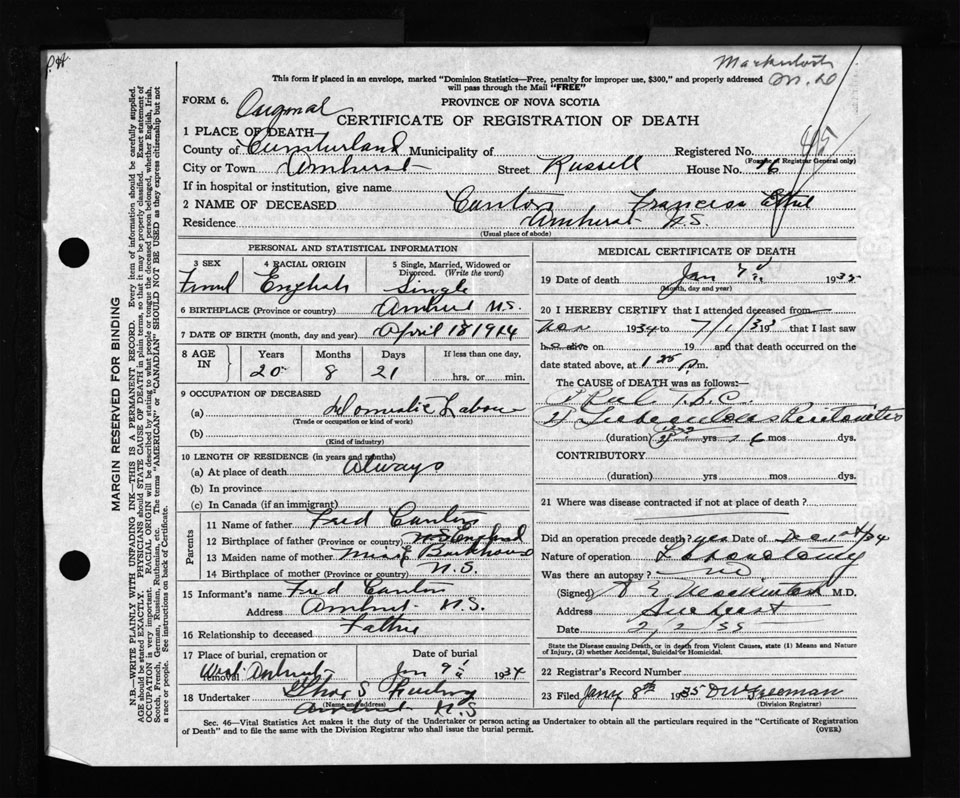 This form if placed in an envelope, marked "Dominion Statistics—Free, penalty for improper use, $300," and properly addressed
will pass through the Mail "FREE"
M.D
FORM 6. Original PROVINCE OF NOVA SCOTIA
CERTIFICATE OF REGISTRATION OF DEATH
1 PLACE OF DEATH—
County of Cumberland Municipality of Registered No.
(For use of Registrar General only)
City or Town Amherst Street Russell House No. 16
If in hospital or institution, give name
2 NAME OF DECEASED Canton Frances Ethel
Residence Amherst N.S.
(Usual place of abode)
PERSONAL AND STATISTICAL INFORMATION
3 SEX 4 RACIAL ORIGIN 5 Single, Married, Widowed or Divorced. (Write the word)
English Single
6 BIRTHPLACE (Province or country) N.S.
7 DATE OF BIRTH (month, day and year) April 18 1914
8 AGE IN Years Months Days If less than one day,
20 8 21 hrs. or min.
9 OCCUPATION OF DECEASED
(a) Domestic
(Trade or occupation or kind of work)
(b)
(Kind of industry)
10 LENGTH OF RESIDENCE (in years and months)
(a) At place of death Always
(b) In province
(c) In Canada (if an immigrant)
Parents
11 Name of father Fred Canton
12 Birthplace of father (Province or country) England
13 Maiden name of mother
14 Birthplace of mother (Province or country) N.S.
15 Informant's name Fred Canton
Address Amherst N.S.
16 Relationship to deceased Father
17 Place of burial, cremation or removal Date of burial
West Amherst Jan 9 1934
18 Undertaker
(Name and address)
Amherst N.S
MEDICAL CERTIFICATE OF DEATH
19 Date of death Jan 7 1935
(Month, day and year)
20 I HEREBY CERTIFY that I attended deceased from
1934 to 7/1/35 193 that I last saw
h alive on 19 and that death occurred on the
date stated above, at 1 m.
The CAUSE OF DEATH was as follows:
1) Pul T.B.C.
2) Tuberculous Peritonitis
(duration) yrs 6 mos dys.
CONTRIBUTORY
(duration) yrs mos dys.
21 Where was disease contracted if not at place of death?
Did an operation precede death? yes Date of Dec 34
Nature of operation Laparotomy
Was there an autopsy? no
(Signed) M.D.
Address Amherst
Date
State the Disease causing Death, or in death from Violent Causes, state (1) Means and Nature
of Injury, (2) whether Accidental, Suicidal or Homicidal.
22 Registrar's Record Number
23 Filed Jany 8th 1935 Freeman
(Division Registrar)
Sec. 46—Vital Statistics Act makes it the duty of the Undertaker or person acting as Undertaker to obtain all the particulars required in the "Certificate of Registration
of Death" and to file the same with the Division Registrar who shall issue the burial permit. (OVER)
MARGIN RESERVED FOR BINDING
N.B.—WRITE PLAINLY WITH UNFADING INK—THIS IS A PERMANENT RECORD. Every item of information should be carefully supplied.
AGE should be stated EXACTLY. PHYSICIANS should STATE CAUSE OF DEATH in plain terms, so that it may be properly classified. Exact statement of
OCCUPATION is very important. RACIAL ORIGIN will be described by stating to what people or tongue the deceased person belonged, whether English, Irish,
Scotch, French, German, Russian, Ruthenian, etc. The terms "AMERICAN" or "CANADIAN" SHOULD NOT BE USED as they express citizenship but not
a race or people. See instructions on back of Certificate.